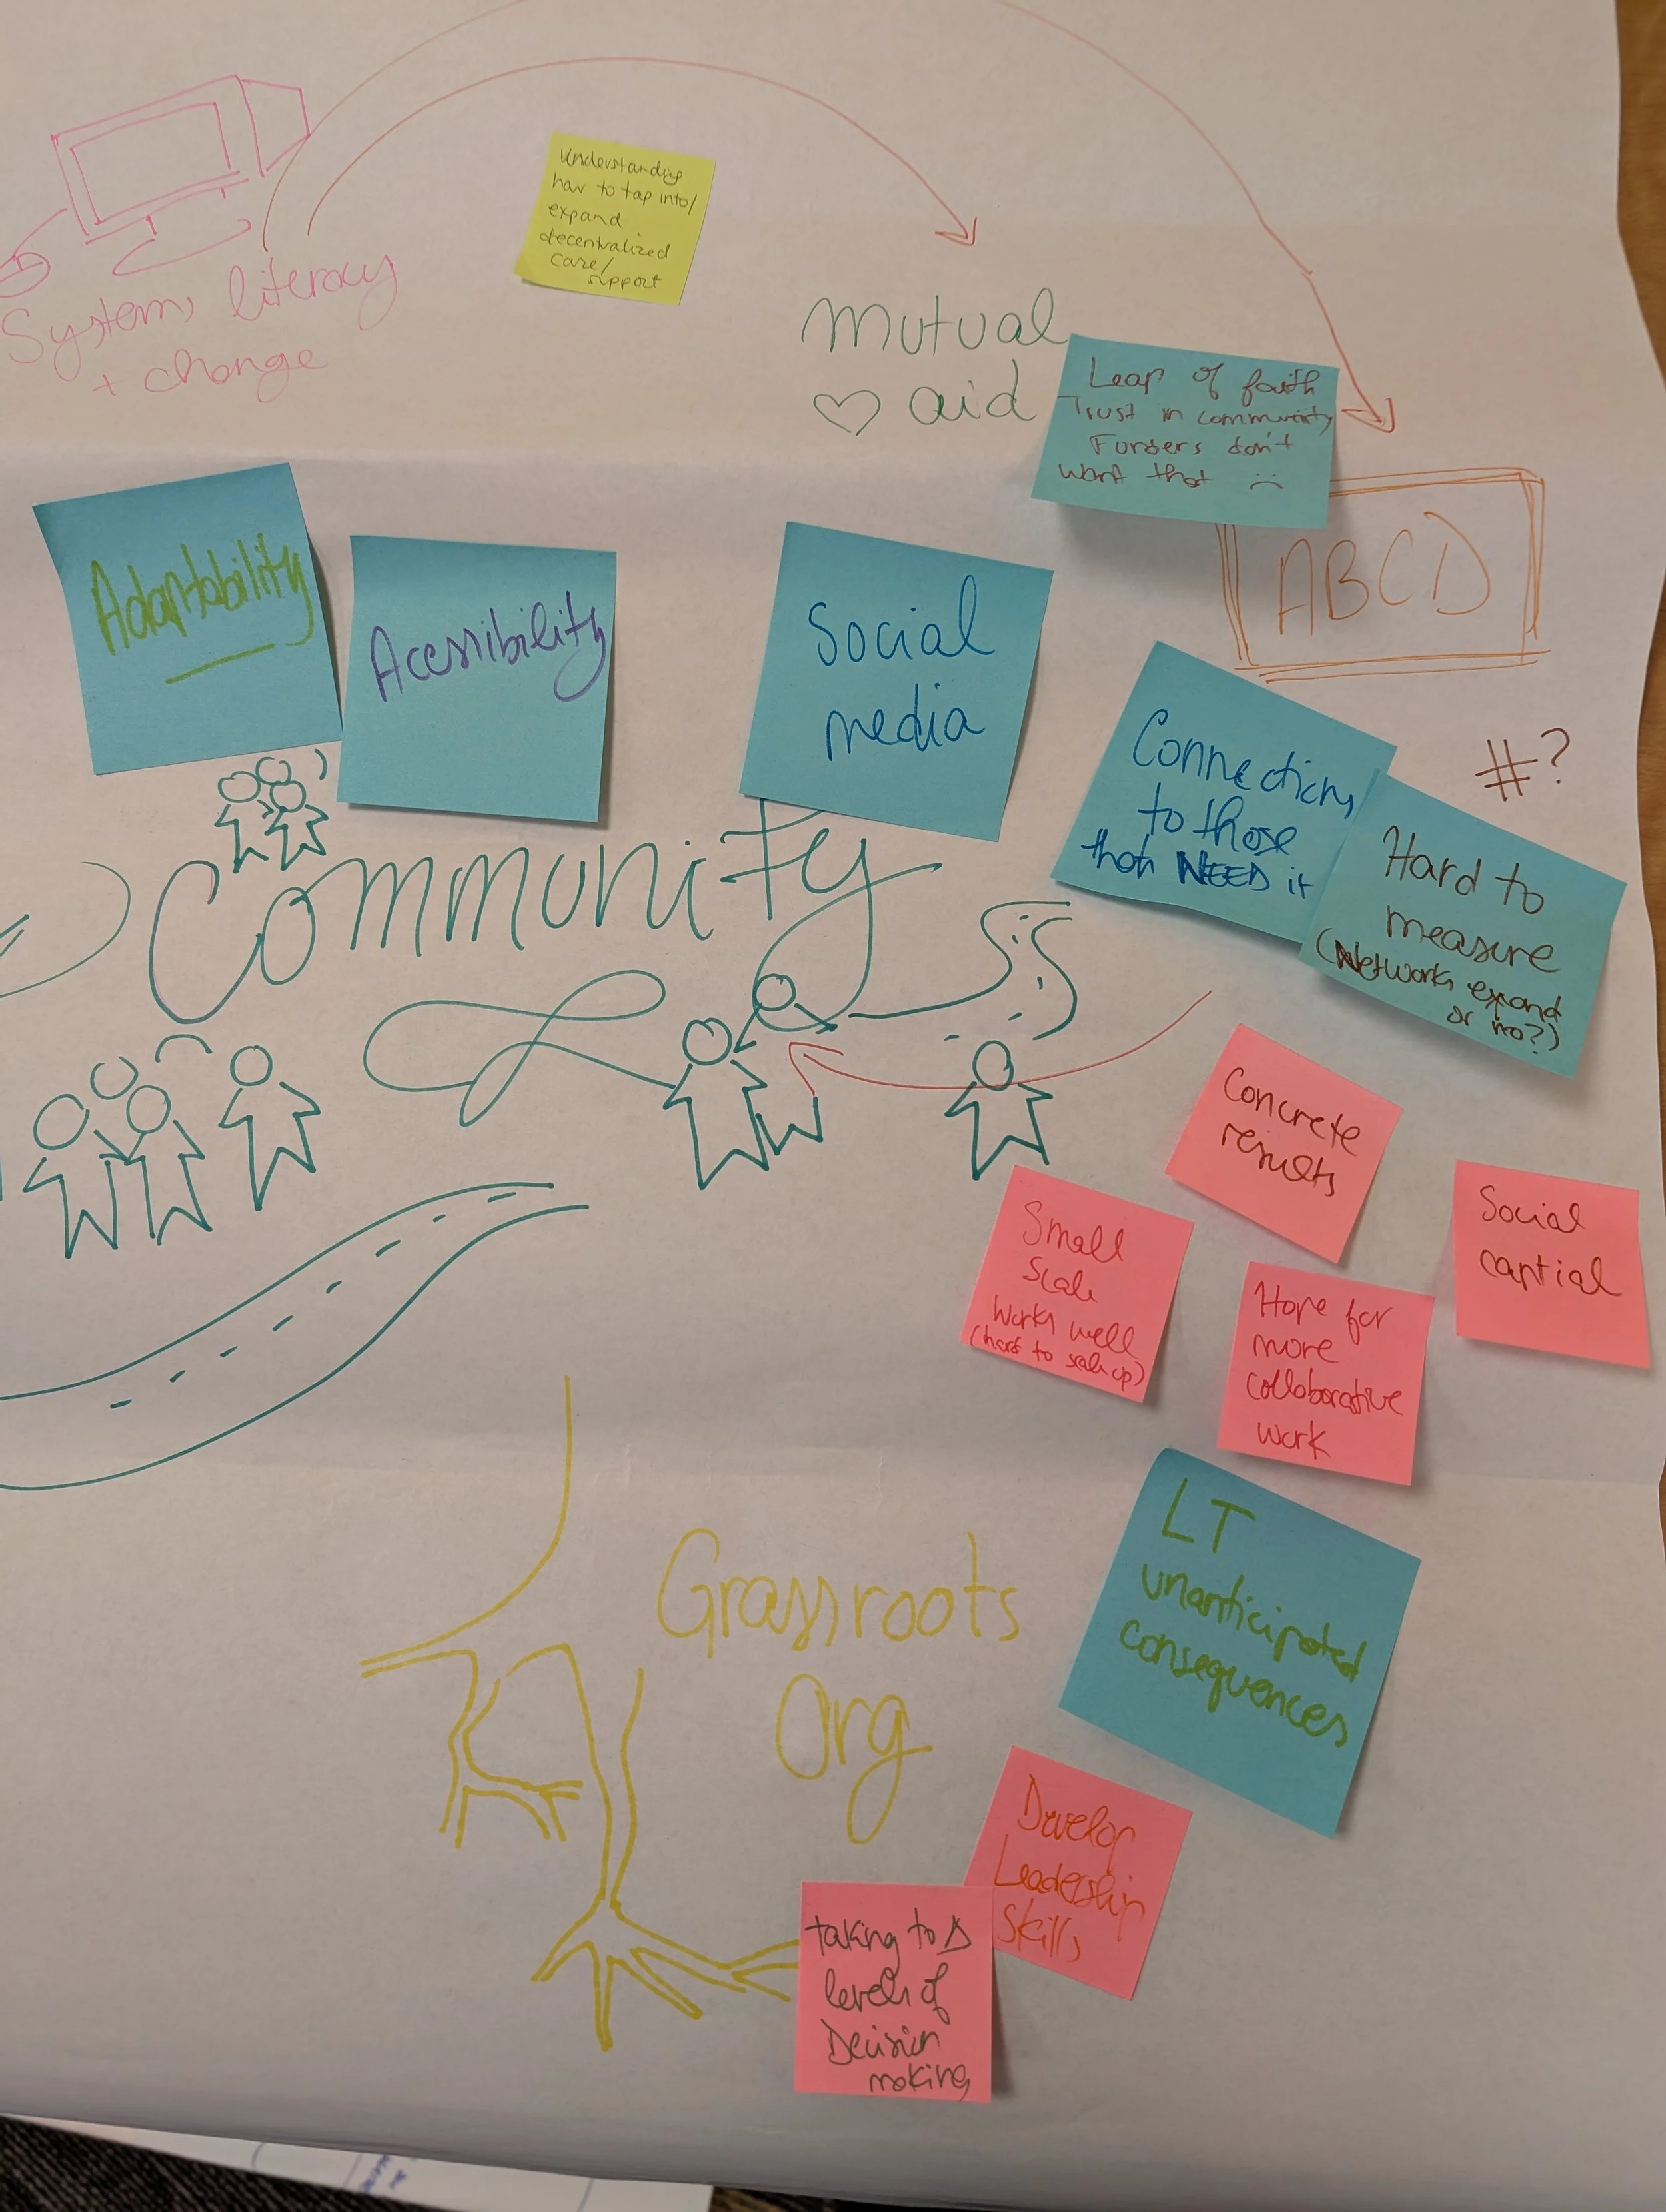 Systems literacy
+ change
Understanding
how to tap into/
expand
decentralized
care/
support
mutual
aid
Leap of faith
Trust in community
Funders don't
want that
ABCD
Adaptability
Acessibility
Social
media
Connections
to those
that NEED it
#?
Hard to
measure
(Networks expand
or no?)
Community
Concrete
results
Small
scale
works well
(hard to scale up)
Social
captial
Hope for
more
collaborative
work
LT
unanticipated
consequences
Grassroots
Org
Develop
Leadership
Skills
taking to Δ
levels of
Decision
making